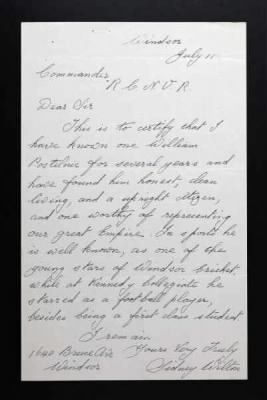 Windsor
July 11
Commander
R C N V R.
Dear Sir
This is to certify that I
have known one William
Postilnic for several years and
have found him honest, clean
living, and a upright citizen,
and one worthy of representing
our great Empire. In sports he
is well known, as one of the
young stars of Windsor Cricket.
while at Kennedy Collegiate he
starred as a football player,
besides being a first class student.
I remain
1640 Bruce Ave Yours Very Truly
Windsor Sidney Wilton